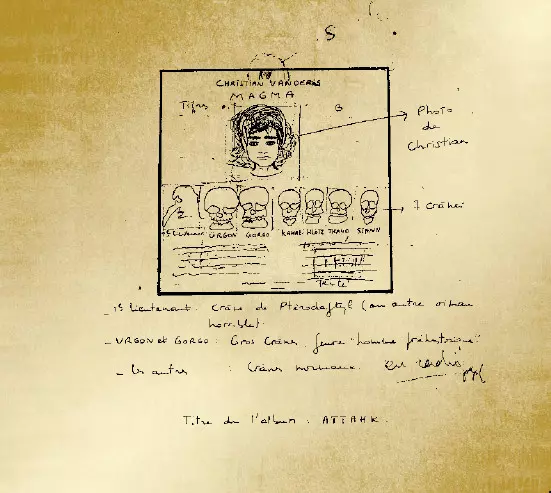 S
CHRISTIAN VANDERS
MAGMA
Titres
Photo
de
Christian
7 crânes
URGON GORGO KAHAL HLOTZ THAUD
texte
_ 1S Lieutenant. Crâne de Ptérodactyl (ou autre oiseau
horrible).
_ URGON et GORGO : Gros Crânes genre "homme préhistorique"
_ les autres : Crânes normaux. en radio
Titre de l'album : ATTAHK.